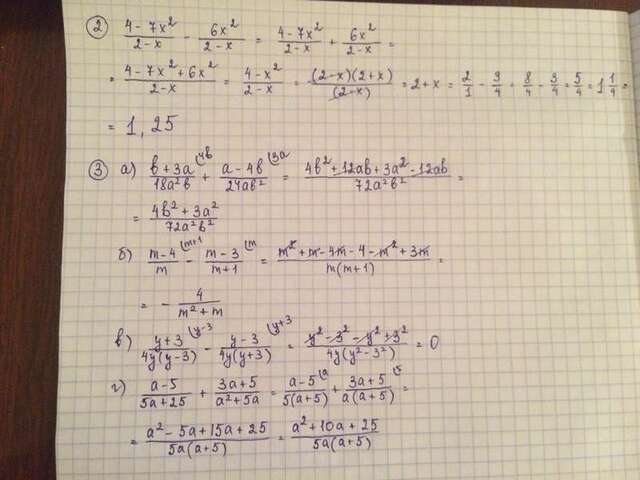 ② (4-7x²)/(2-x) - 6x²/(2-x) = (4-7x²)/(2-x) + 6x²/(2-x) =
= (4-7x²+6x²)/(2-x) = (4-x²)/(2-x) = (2-x)(2+x)/(2-x) = 2+x = 2/1 - 3/4 = 8/4 - 3/4 = 5/4 = 1 1/4 =
= 1,25
③ а) (b+3a)/(18a²b) ⌊4b + (a-4b)/(24ab²) ⌊3a = (4b²+12ab+3a²-12ab)/(72a²b²) =
= (4b²+3a²)/(72a²b²)
б) (m-4)/m ⌊m+1 - (m-3)/(m+1) ⌊m = (m²+m-4m-4-m²+3m)/(m(m+1)) =
= - 4/(m²+m)
в) (y+3)/(4y(y-3)) ⌊y-3 - (y-3)/(4y(y+3)) ⌊y+3 = (y²-3²-y²+3²)/(4y(y²-3²)) = 0
г) (a-5)/(5a+25) + (3a+5)/(a²+5a) = (a-5)/(5(a+5)) ⌊a + (3a+5)/(a(a+5)) ⌊5 =
= (a²-5a+15a+25)/(5a(a+5)) = (a²+10a+25)/(5a(a+5))